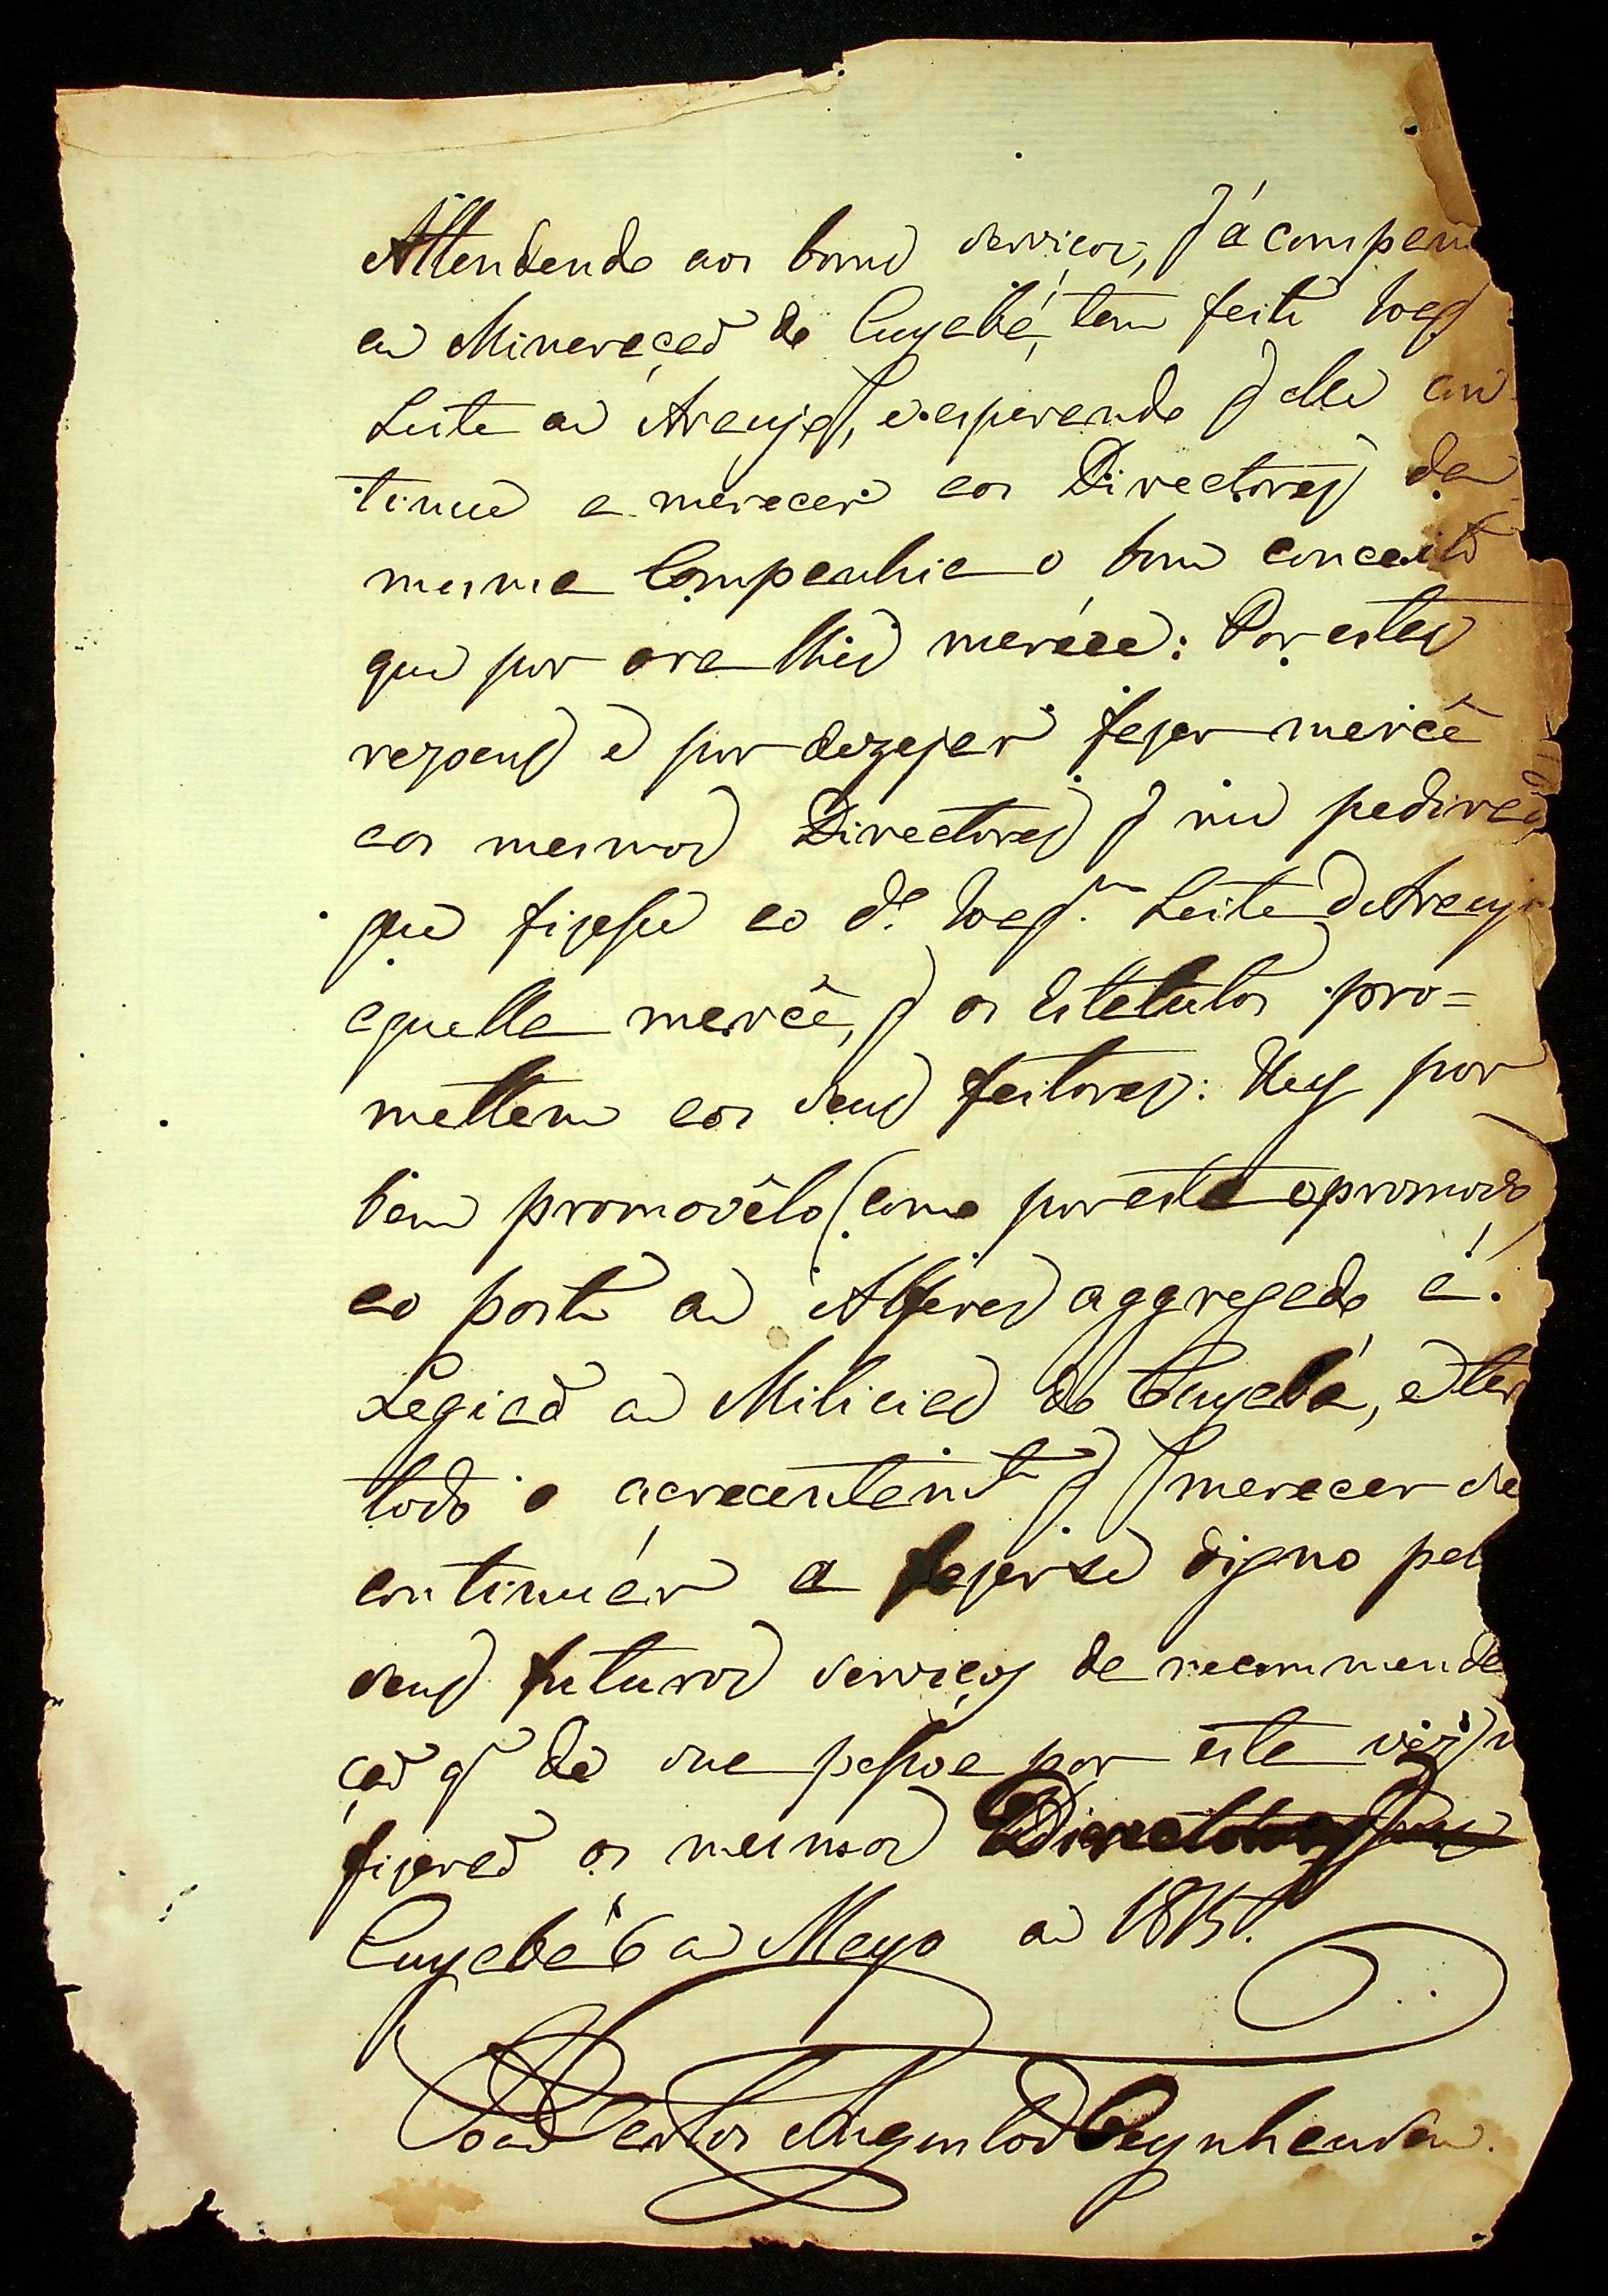 Attendendo aos bons serviços, q' á Compan
de Mineração do Cuyabá, tem feito Joaq
Leite de Araujo, e esperando q' elle con
tinue a merecer aos Directores da
mesma Companhia o bom conceito
que por ora lhes merece: Por estas
rezoens e por dezejar fazer mercê
aos mesmos Directores q' me pedirão
que fizesse ao d.º Joaq.m Leite de Arauj
aquella mercê, q' os Estatutos pro=
mettem aos seus feitores: Hey por
bem promovêlo (como por este o promovo)
ao posto de Alferes aggregado á
Legião de Milicias do Cuyabá, e ter
todo o acrecentam.to q' merecer se
continuar a fazerse digno pel
seus futuros serviços da recommenda
ção q' da sua pessoa por esta vez
fizerão os mesmos Directores
Cuyabá 6 de Mayo de 1815.
João Carlos Augusto d'Oeynhausen.